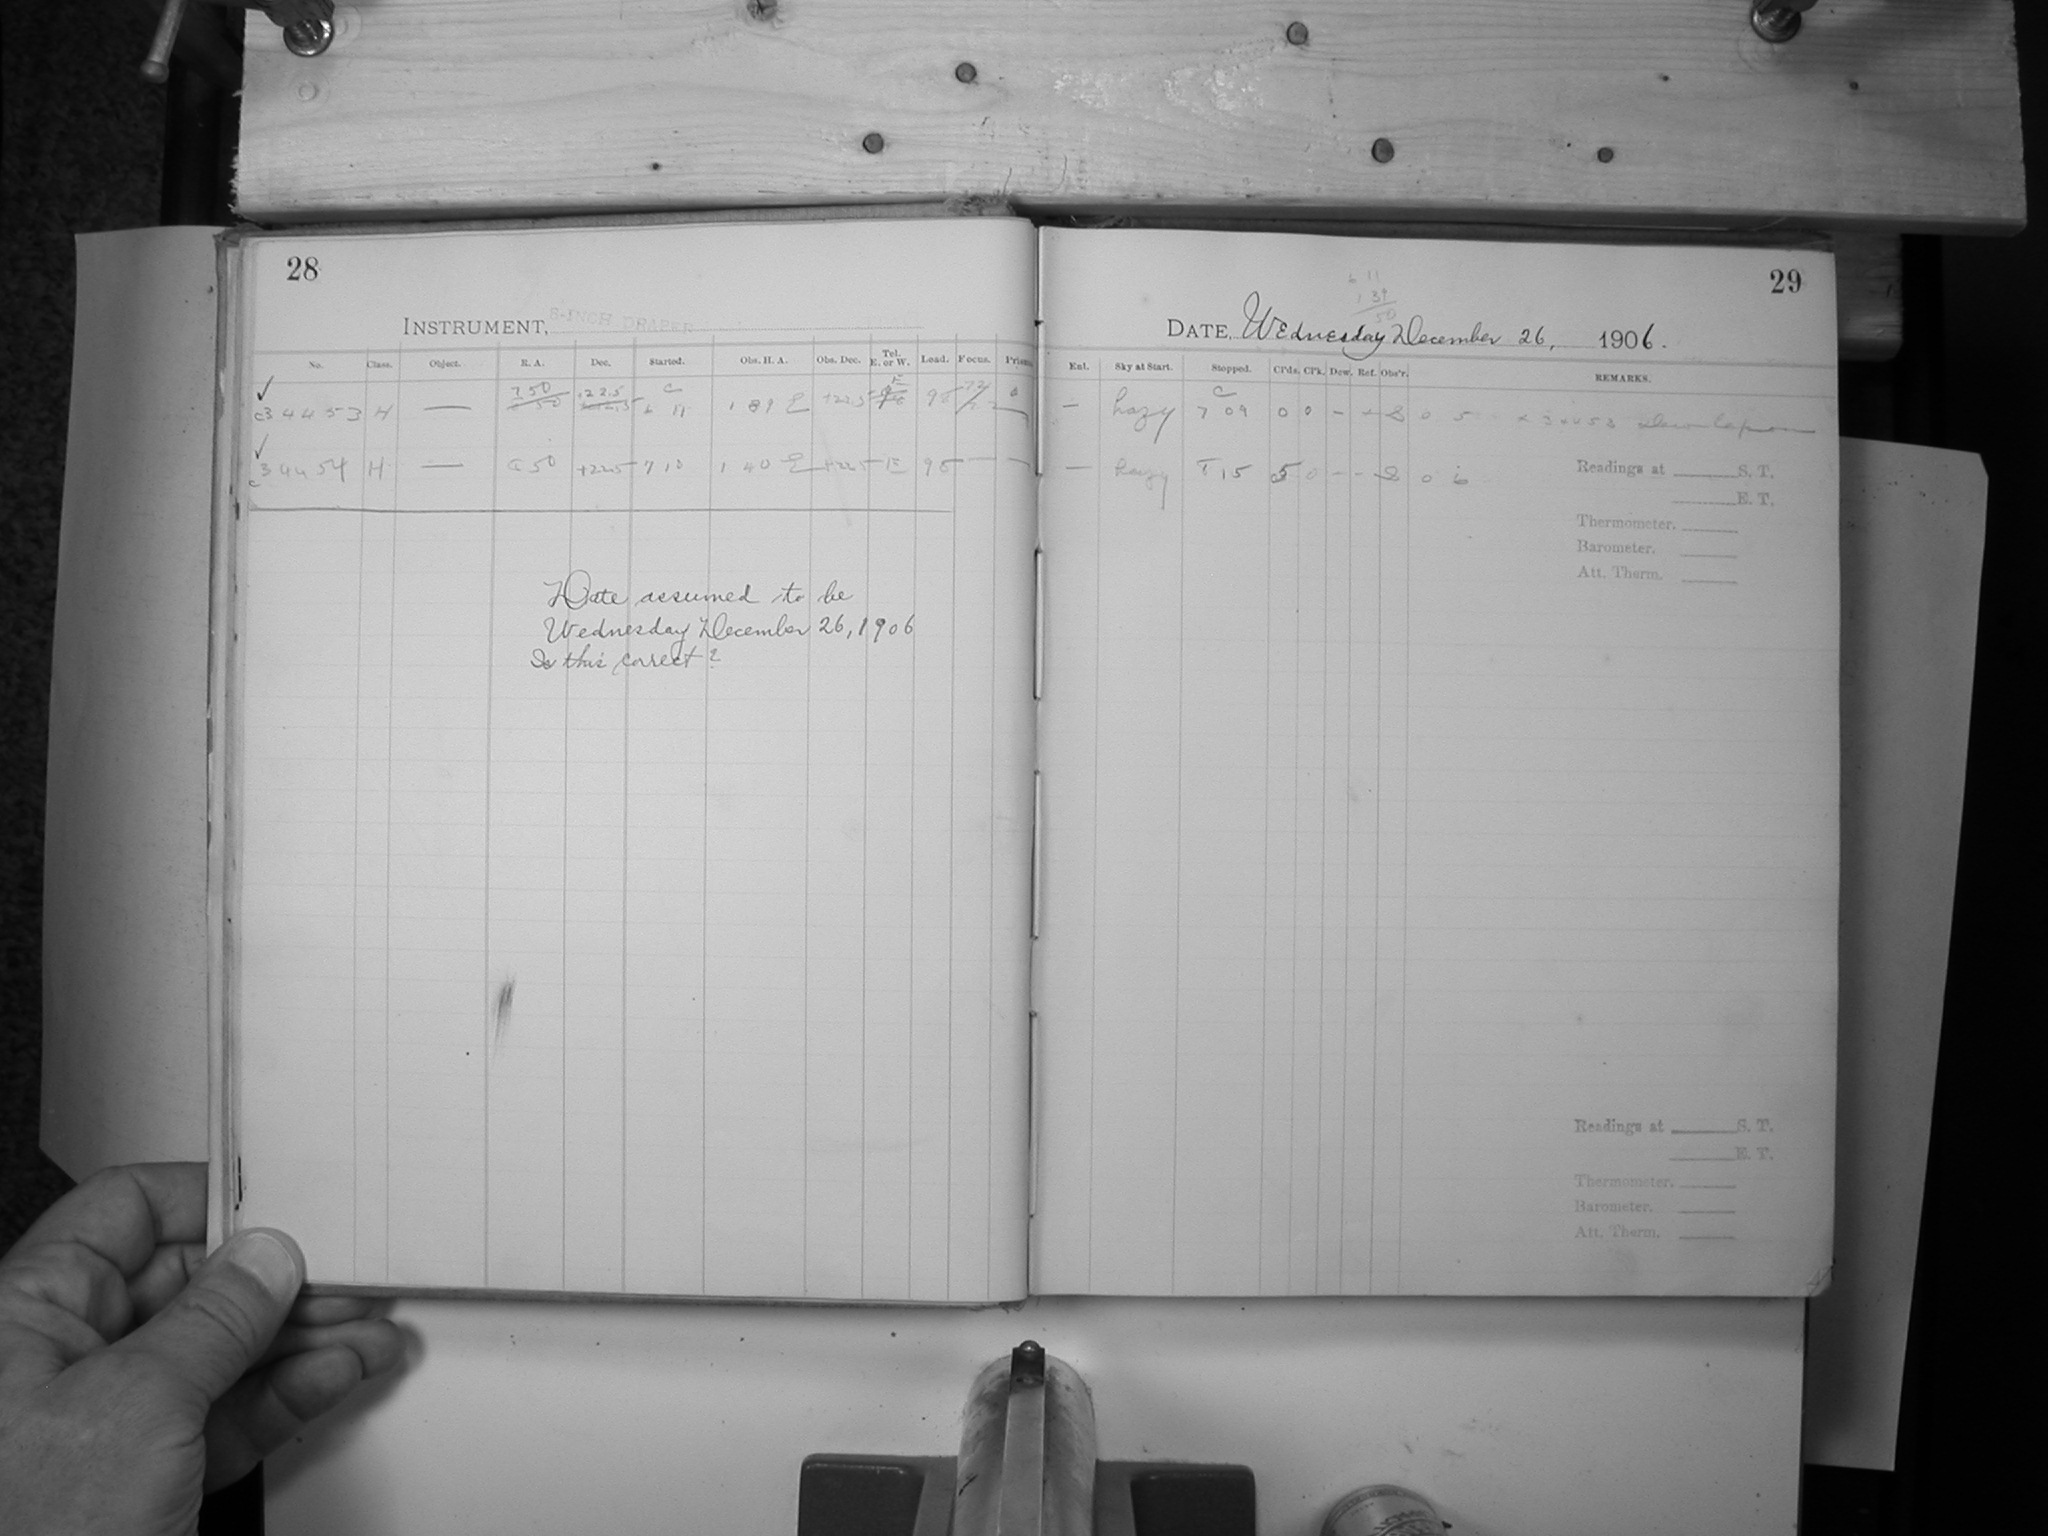 28
INSTRUMENT, 8-INCH DRAPER
No. Class. Object. R. A. Dec. Started. Obs. H. A. Obs. Dec. Tel. E. or W. Load. Focus. Prism
c34453 H — 7 50 +22.5 6 11 +22.5 E 98
c34454 H — 50 +225 7 10 1 40 E +225 E 95 — —
Date assumed to be
Wednesday December 26, 1906
Is this correct?
29
6 11
1 39
50
DATE, Wednesday December 26, 1906.
Ent. Sky at Start. Stopped. Cl'ds. Cl'k. Dew. Ref. Obs'r. REMARKS.
— hazy 7 09 0 0 - 0 5
— hazy 15 5 0 - - 0 6
Readings at S. T.
E. T.
Thermometer.
Barometer.
Att. Therm.
Readings at S. T.
E. T.
Thermometer.
Barometer.
Att. Therm.